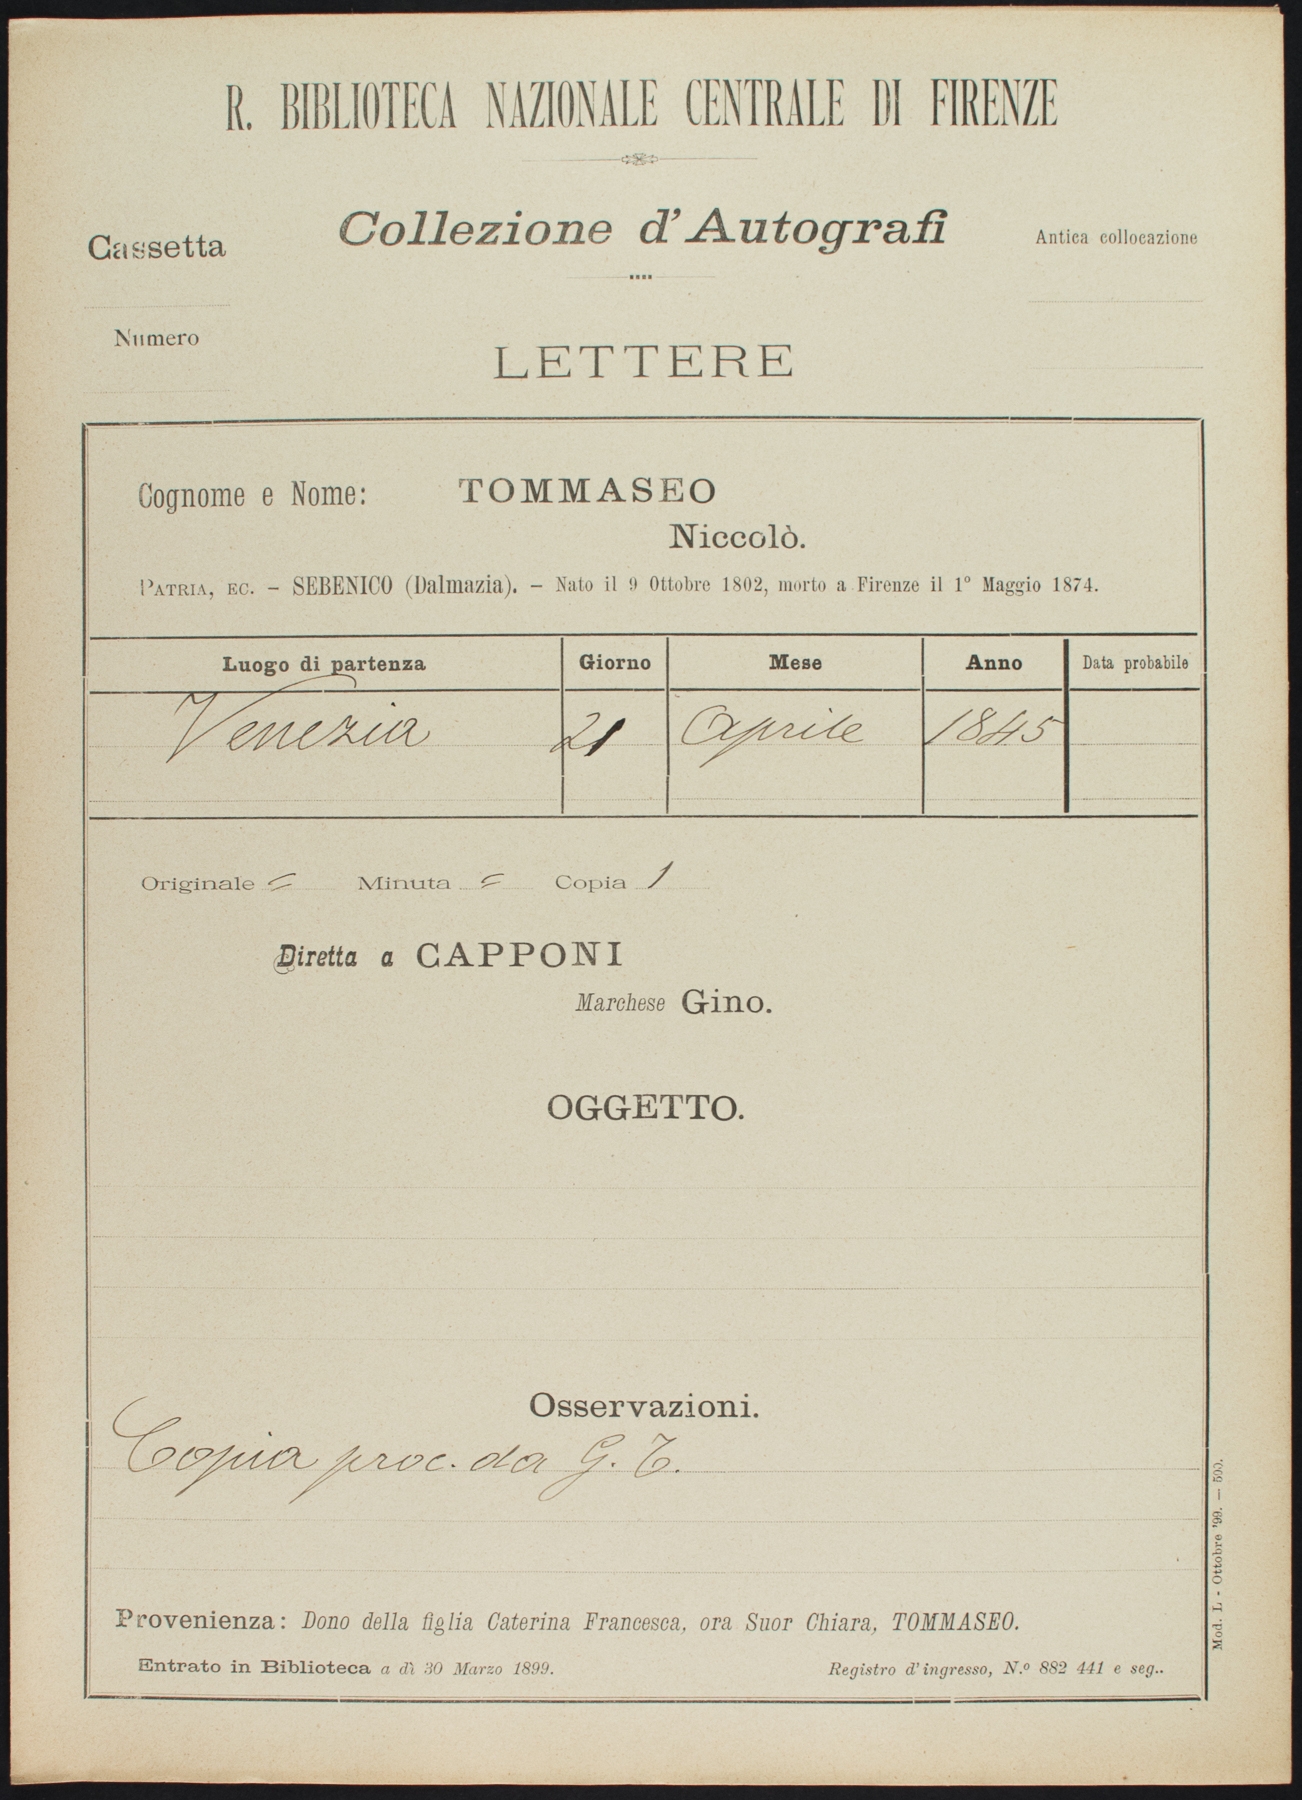 R. BIBLIOTECA NAZIONALE CENTRALE DI FIRENZE
Collezione d'Autografi
Cassetta
Antica collocazione
Numero
LETTERE
Cognome e Nome: TOMMASEO
Niccolò.
PATRIA, EC. – SEBENICO (Dalmazia). – Nato il 9 Ottobre 1802, morto a Firenze il 1º Maggio 1874.
Luogo di partenza Giorno Mese Anno Data probabile
Venezia 21 Aprile 1845
Originale = Minuta = Copia 1
Diretta a CAPPONI
Marchese Gino.
OGGETTO.
Osservazioni.
Copia proc. da G. T.
Provenienza: Dono della figlia Caterina Francesca, ora Suor Chiara, TOMMASEO.
Entrato in Biblioteca a dì 30 Marzo 1899. Registro d'ingresso, N.º 882 441 e seg..
Mod. L - Ottobre '99. — 500.